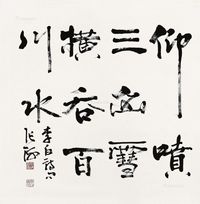 仰噴
三山雪
横吞百
川水
李白詩句